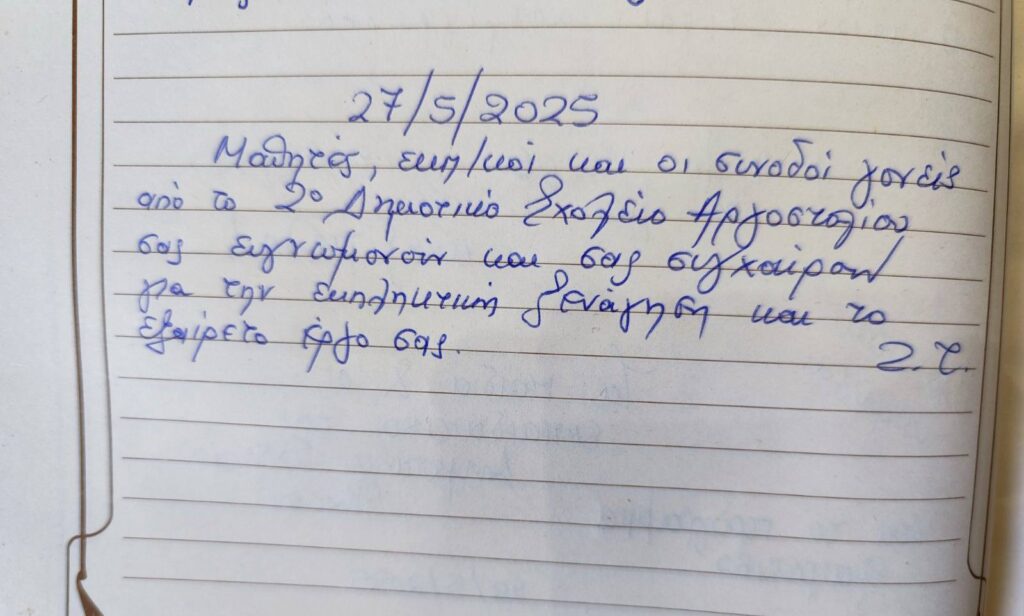 27/5/2025
Μαθητές, εκπ/κοί και οι συνοδοί γονείς
από το 2ο Δημοτικό Σχολείο Αργοστολίου
σας ευγνωμονούν και σας συγχαίρουν
για την εκπληκτική ξενάγηση και το
εξαίρετο έργο σας.